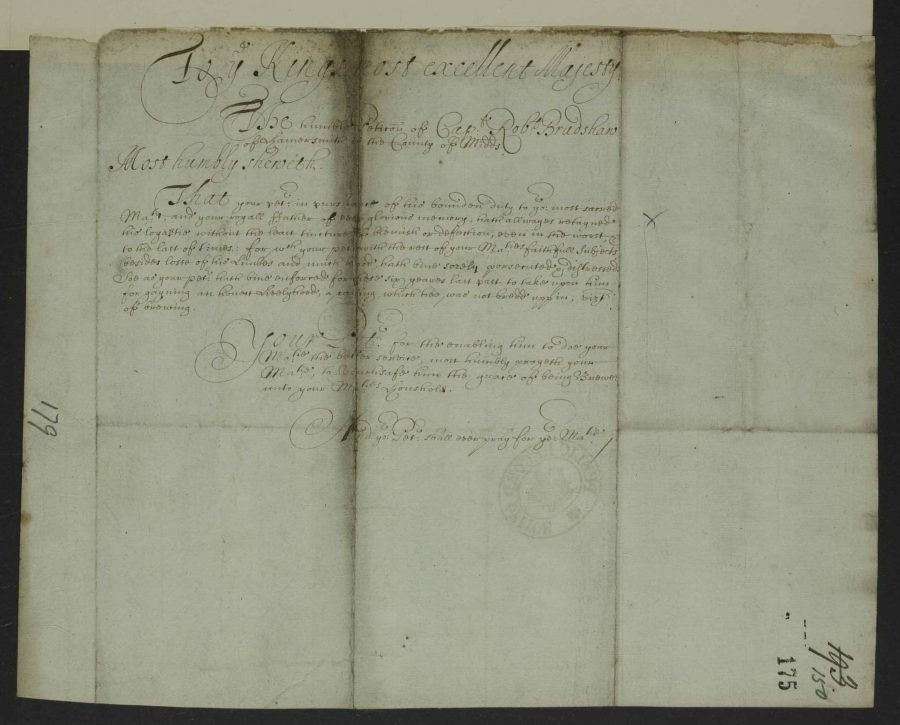 To ye Kings most excellent Majesty
The humble Peticon of Capt. Robt. Bradshaw
of Hamersmith in the County of Midds
Most humbly sheweth.
That your petr. in pursuance of his bounden duty to yor. most sacred
Matie, and your royall ffather of ever glorious memory, hath allwayes retayned
his loyaltie without the least tincture of blemish or defection, even in the worst &
to the last of times: for wch your petr. with the rest of your Maties faithfull Subjects
besides losse of his Limbes and much blood hath bine sorely persecuted & distressed
Soe as your petr. hath bine enforced for these six yeares last past to take upon him
for gayning an honest livelyhood, a calling which hee was not bredd upp in, vizt
of brewing.
Your Petr. for the enabling him to doe your
Matie the better service, most humbly prayeth your
Matie, to vouchsafe him the grace of being Brewer
unto your Maties Houshold.
And yor. Petr. shall ever pray for yor. Matie
x
179
175
150